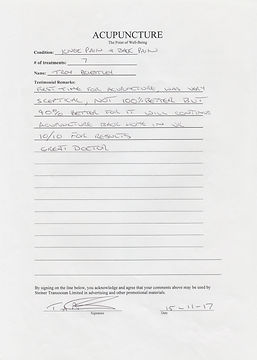 ACUPUNCTURE
The Point of Well-Being
Condition: KNEE PAIN & BACK PAIN
# of treatments: 7
Name: TROY
Testimonial Remarks:
FIRST TIME FOR ACUPUNCTURE WAS VERY
SCEPTICAL, NOT 100% BETTER BUT
90% BETTER FOR IT WILL CONTINUE
ACUPUNCTURE BACK HOME IN UK
10/10 FOR RESULTS
GREAT DOCTOR
By signing on the line below, you acknowledge and agree that your comments above may be used by
Steiner Transocean Limited in advertising and other promotional materials.
15-11-17
Signature Date